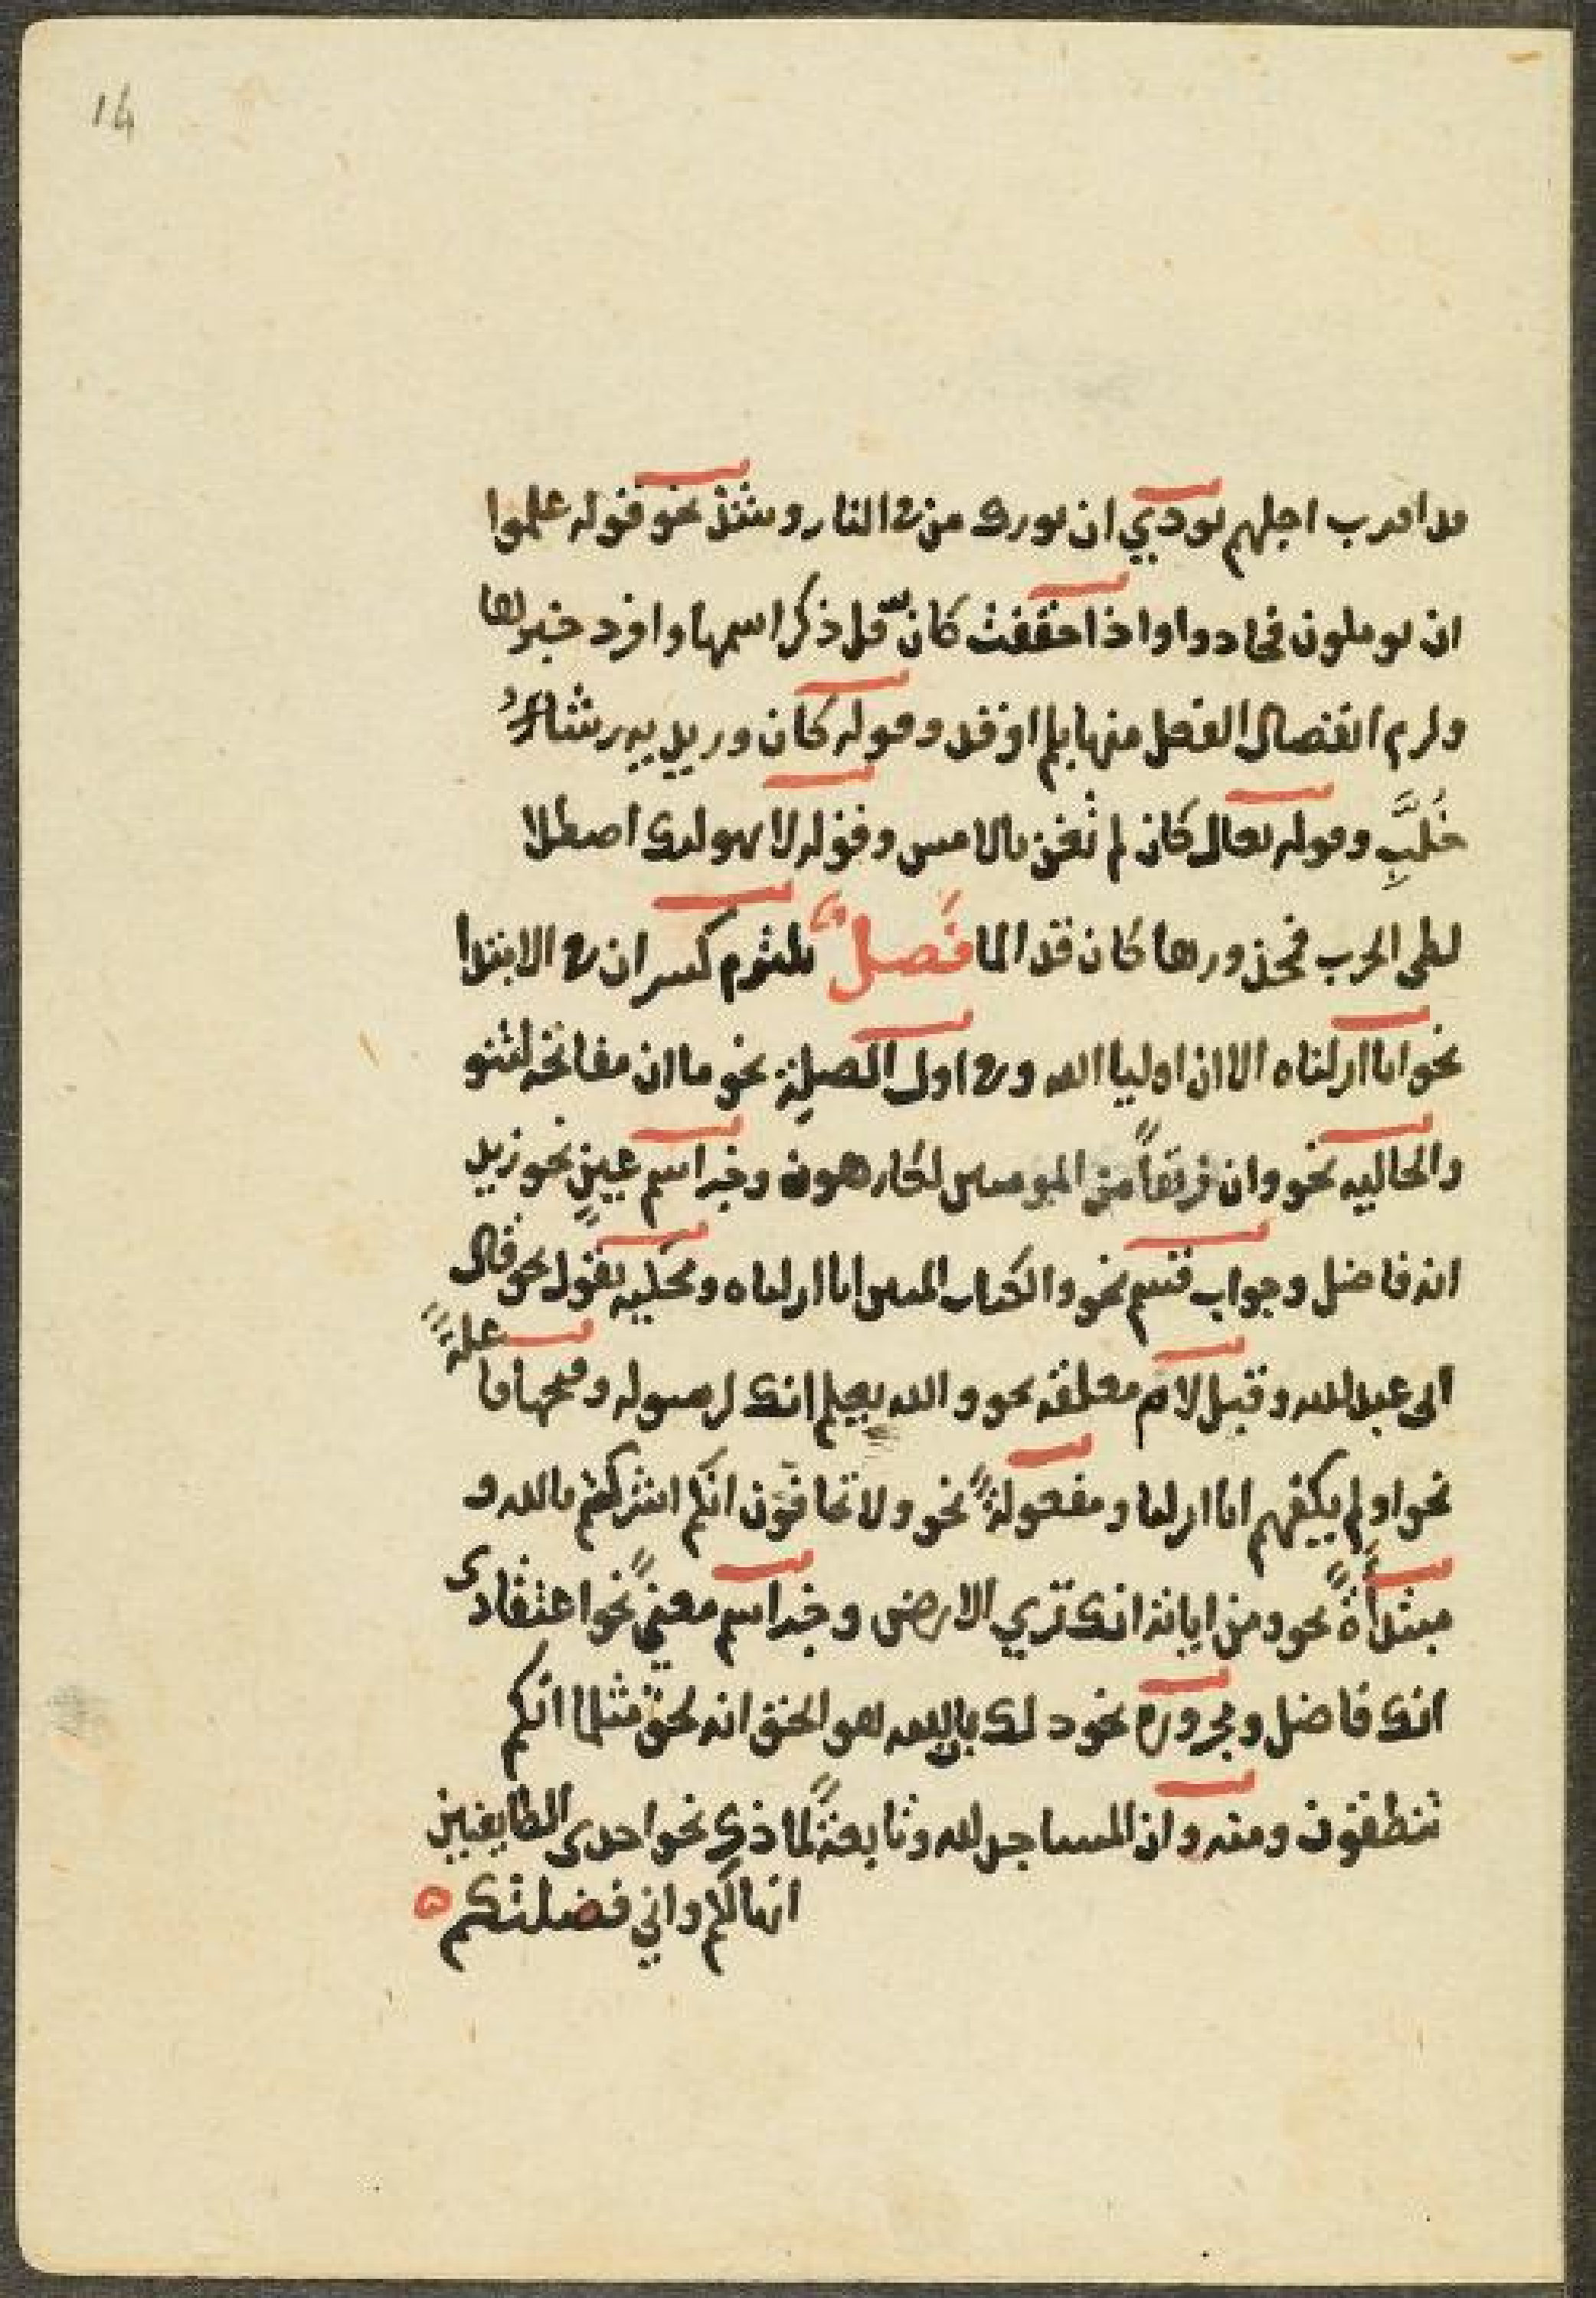 14
قد اقترب اجلهم نودي ان بورك من في النار وشذ نحو قوله علموا
ان يوملون فجادوا واذا خففت كان قل ذكر اسمها وافرد خبرها
ولزم انفصال الفعل منها بلم او قد وقوله كان وريديه رشاءُ
خُلبِّ وقوله تعالى كان لم تغن بالامس وقوله لا يهولنك اصطلا
لظى الحرب فمحذورها كان قد الما فَصل يلتزم كسر ان في الابتدا
نحو انا انزلناه الا ان اوليا الله وفي اول الصلة نحو ما ان مفاتحه لتنو
والحاليه نحو وان فريقاً من المومنين لكارهون وخبر اسم عين نحو زيد
انه فاضل وجواب قسم نحو والكتاب المبين انا انزلناه ومحكيه بقول نحو قال
انى عبد الله وقبل لام معلقه نحو والله يعلم انك لرسوله وفتحها فاعلةً
نحو اولم يكفهم انا انزلنا ومفعولةً نحو ولا تخافون انكم اشركتم بالله و
مبتدأةً نحو ومن اياته انك تري الارض وخبر اسم معنيً نحو اعتقادى
انك فاضل ومجرورة نحو ذلك بان الله هو الحق انه لحق مثلما انكم
تنطقون ومنه وان المساجد لله وتابعةً لما ذكر نحو احدى الطايفتين
انها لكم واني فضلتكم ه